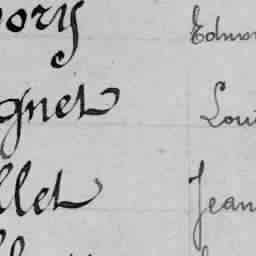 ory Edmo
gnet Loui
llet Jean